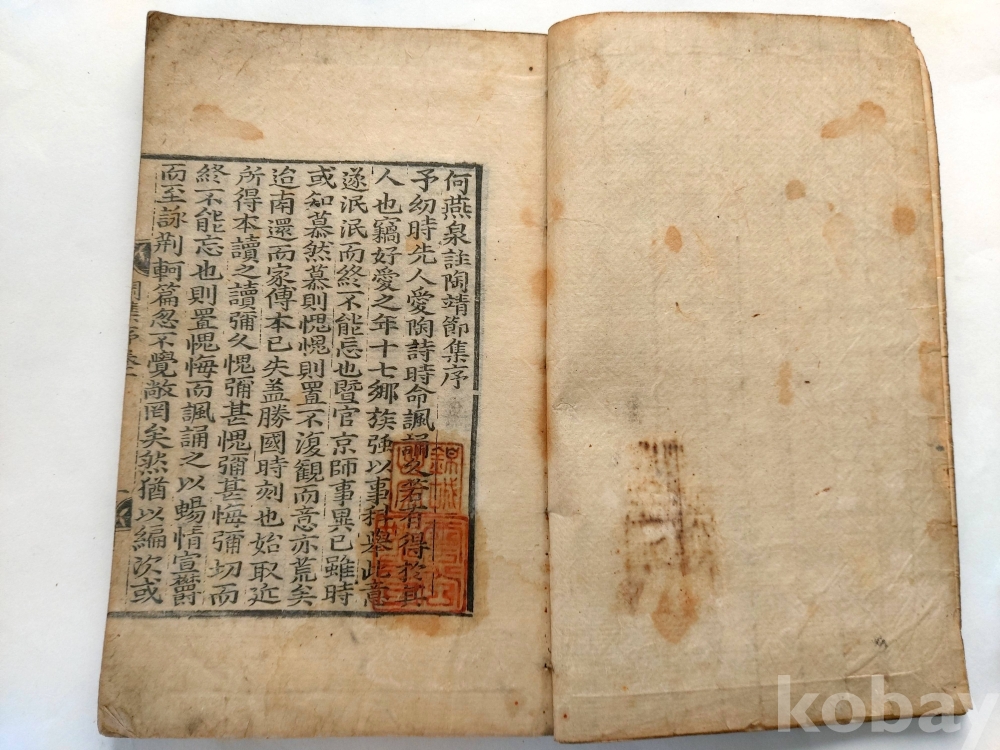 何燕泉註陶靖節集序
予幼時先人愛陶詩時命諷誦之若有得於其
人也竊好愛之年十七鄉族強以事科舉此意
遂泯泯而終不能忘也曁官京師事異已雖時
或知慕然慕則愧愧則置不復観而意亦荒矣
迨南還而家傳本已失盖勝國時刻也始取近
所得本讀之讀彌久愧彌甚愧彌甚悔彌切而
終不能忘也則置愧悔而諷誦之以暢情宣欝
而至詠荆軻篇忽不覺敞罔矣然猶以編次或
錦城
kobay